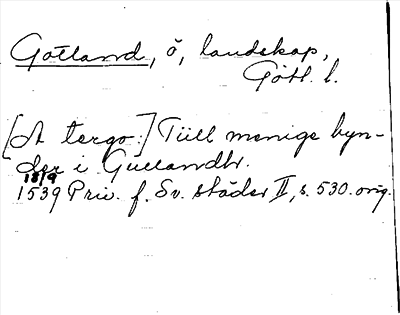 Gotland, ö, landskap,
Götl. l.
[A tergo:] Till menige byn-
der i Gullandh.
18/9
1539 Priv. f. Sv. städer II, s. 530. orig.